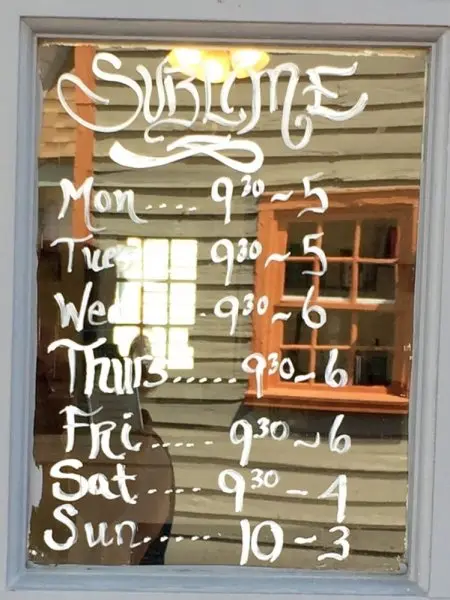 SUBLIME
Mon.... 9 30 ~ 5
Tues 9 30 ~ 5
Wed . 9 30 ~ 6
Thurs...... 9 30 ~ 6
Fri..... 9 30 ~ 6
Sat.... 9 30 - 4
Sun..... 10 - 3